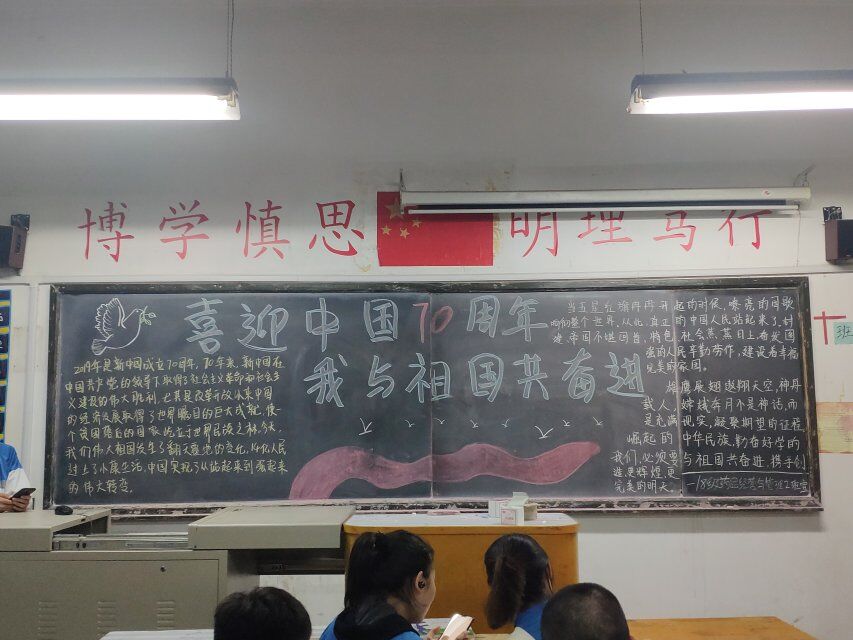 博学慎思
明理
行
喜迎中国70周年
我与祖国共奋进
2019年是新中国成立70周年,70年来,新中国在
中国共产党的领导下取得了社会主义革命和社会主
义建设的伟大胜利,尤其是改革开放以来中国
的经济发展取得了世界瞩目的巨大成就,使一
个贫困落后的国家,屹立于世界民族之林,今天,
我们伟大祖国发生了翻天覆地的变化,人民
过上了小康生活,中国实现了从站起来到富起来
的伟大转变。
当五星红旗冉冉升起的时候,嘹亮的国歌
响彻整个世界,从此,真正的中国人民站起来了,封
建帝国不堪回首,社会蒸蒸日上,奋发图
强的人民辛勤劳作,建设着幸福
完美的家园。
雄鹰展翅遨翔天空,神舟
载人,嫦娥奔月不是神话,而
是充满现实,凝聚期望的征程
崛起的中华民族,勤奋好学的
我们,必须要与祖国共奋进,携手创
造更辉煌,更
完美的明天。
班